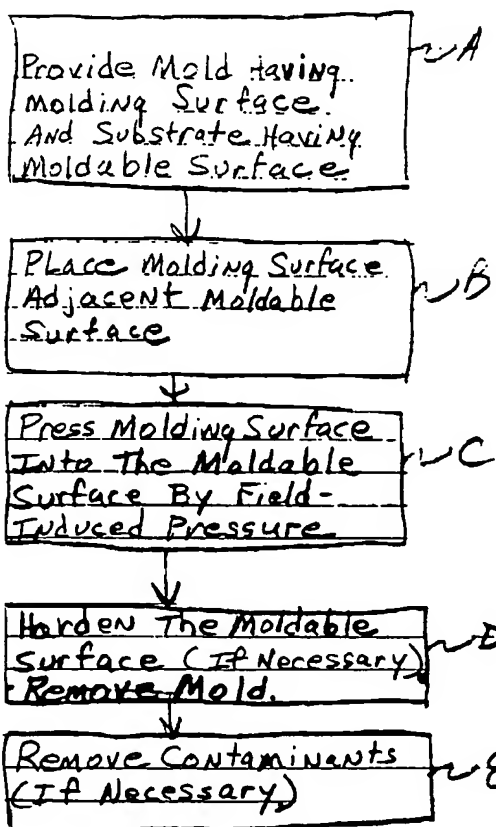 Provide Mold Having A
Molding Surface
And Substrate Having
Moldable Surface
Place Molding Surface
Adjacent Moldable B
Surface
Press Molding Surface
Into The Moldable C
Surface By Field-
Induced Pressure
Harden The Moldable
Surface (If Necessary), D
Remove Mold.
Remove Contaminants
(If Necessary) E